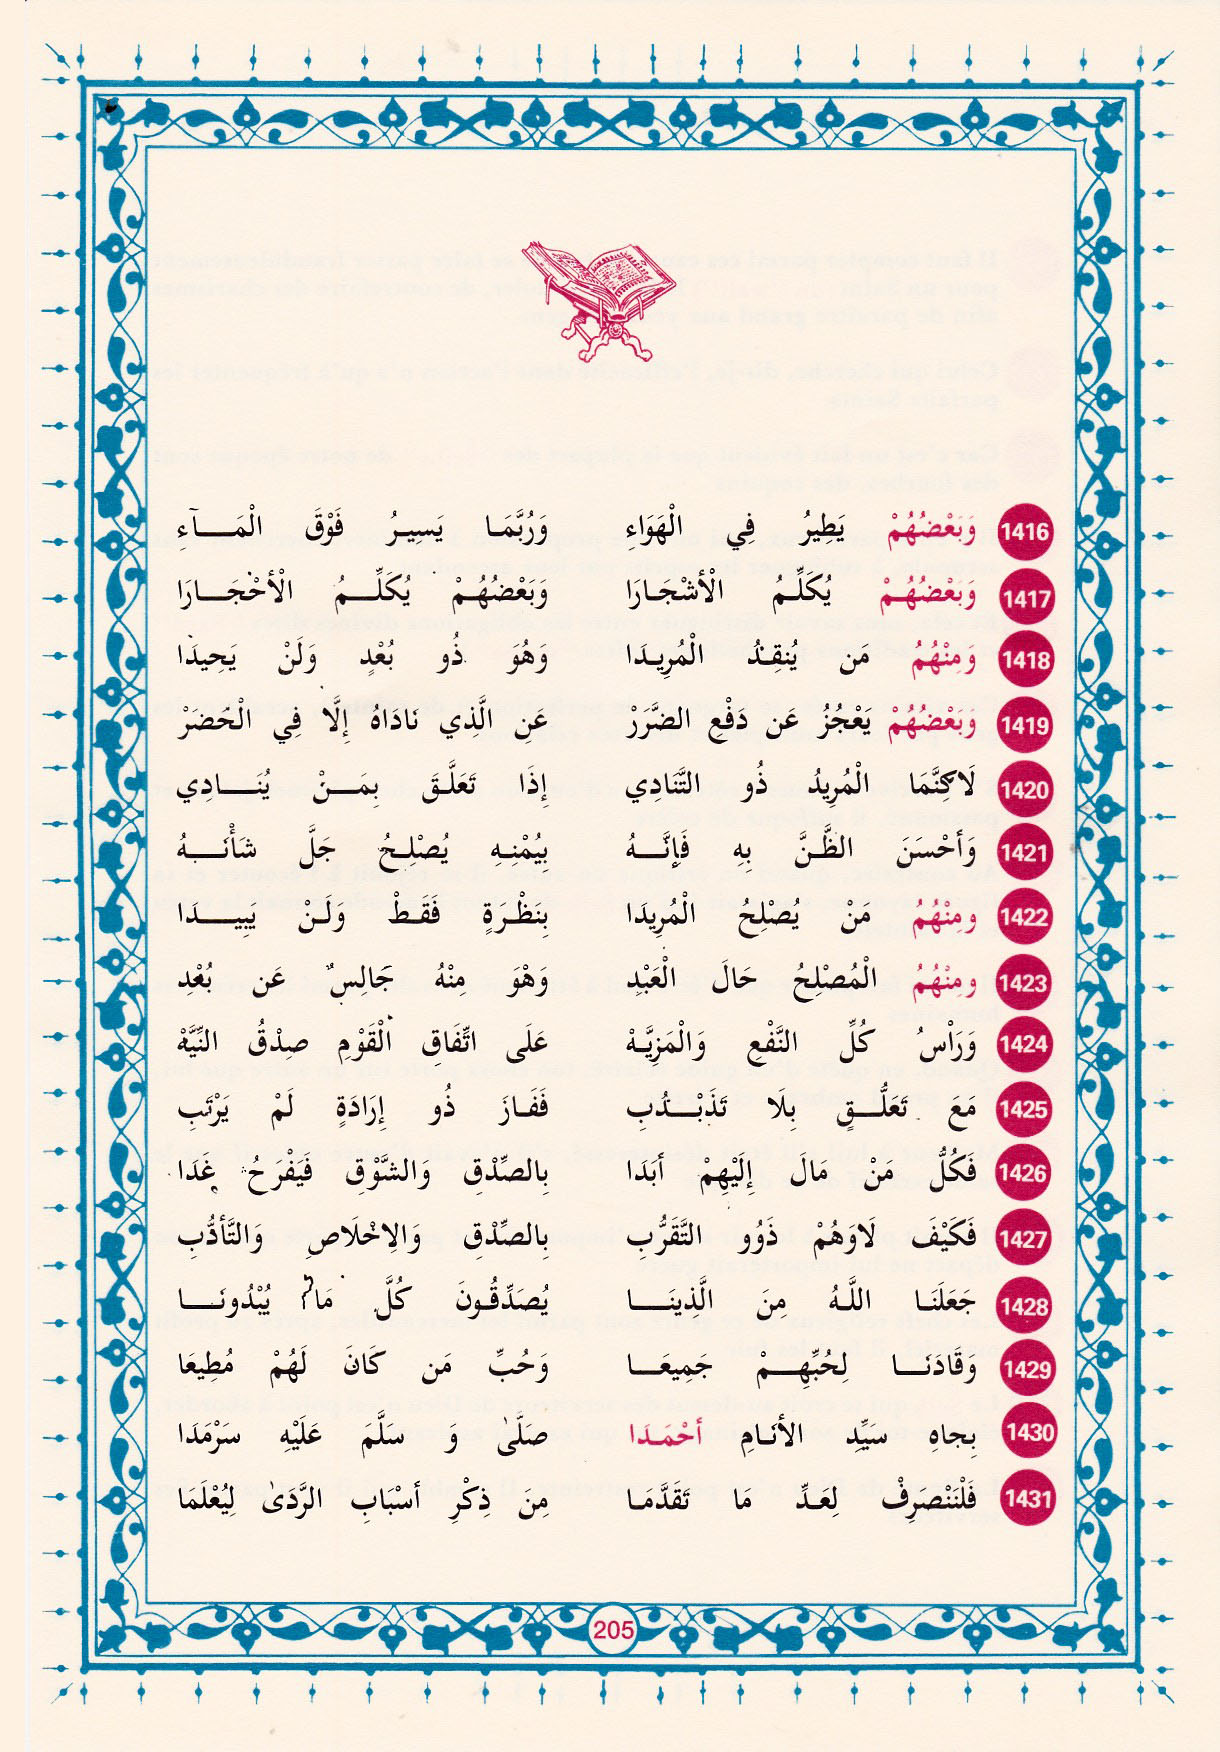 1416 وَبَعْضُهُمْ يَطِيرُ فِي الْهَوَاءِ وَرُبَّمَا يَسِيرُ فَوْقَ الْمَــآءِ
1417 وَبَعْضُهُمْ يُكَلِّمُ الْأشْجَارَا وَبَعْضُهُمْ يُكَلِّمُ الْأحْجَارَا
1418 وَمِنْهُمُ مَن يُنقِذُ الْمُرِيدَا وَهُوَ ذُو بُعْدٍ وَلَنْ يَحِيدَا
1419 وَبَعْضُهُمْ يَعْجُزُ عَن دَفْعِ الضَّرَرْ عَنِ الَّذِي نَادَاهُ إِلَّا فِي الْحَضَرْ
1420 لَاكِنَّمَا الْمُرِيدُ ذُو التَّنَادِي إِذَا تَعَلَّقَ بِمَنْ يُنَادِي
1421 وَأحْسَنَ الظَّنَّ بِهِ فَإِنَّهُ بِيُمْنِهِ يُصْلِحُ جَلَّ شَأْنَهُ
1422 ومِنْهُمُ مَنْ يُصْلِحُ الْمُرِيدَا بِنَظْرَةٍ فَقَطْ ولَنْ يَبِيدَا
1423 ومِنْهُمُ الْمُصْلِحُ حَالَ الْعَبْدِ وَهْوَ مِنْهُ جَالِسٌ عَن بُعْدِ
1424 وَرَاْسُ كُلِّ النَّفْعِ وَالْمَزِيَّهْ عَلَى اتِّفَاقِ الْقَوْمِ صِدْقُ النِّيَّهْ
1425 مَعَ تَعَلُّقٍ بِلَا تَذَبْذُبِ فَفَازَ ذُو إِرَادَةٍ لَمْ يَرْتَبِ
1426 فَكُلُّ مَنْ مَالَ إِلَيْهِمْ أبَدَا بِالصِّدْقِ وَالشَّوْقِ فَيَفْرَحُ غَدَا
1427 فَكَيْفَ لَاوَهُمْ ذَوُو التَّقَرُّبِ بِالصِّدْقِ وَالِاخْلَاصِ وَالتَّأدُّبِ
1428 جَعَلَنَا اللَّهُ مِنَ الَّذِينَا يُصَدِّقُونَ كُلَّ مَا يُبْدُونَا
1429 وَقَادَنَا لِحُبِّهِمْ جَمِيعَا وَحُبِّ مَن كَانَ لَهُمْ مُطِيعَا
1430 بِجاهِ سَيِّدِ الأنَامِ أحْمَدَا صَلَّىٰ وَ سَلَّمَ عَلَيْهِ سَرْمَدَا
1431 فَلْنَنْصرِفْ لِعَدِّ مَا تَقَدَّمَا مِنَ ذِكْرِ أسْبَابِ الرَّدَىٰ لِيُعْلَمَا
205